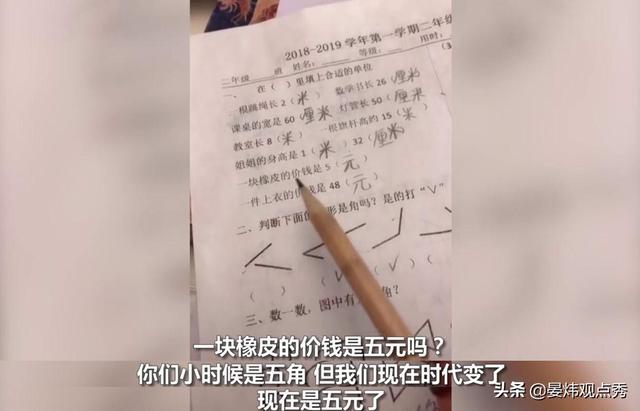 2018-2019 学年第一学期二年级
二年级 班 姓名: 等级: 用时:
一、在（ ）里填上合适的单位
一根跳绳长 2（米） 数学书长 26（厘米）
课桌的宽是 60（厘米） 灯管长 50（厘米）
教室长 8（米） 一根旗杆高约 15（米）
姐姐的身高是 1（米）32（厘米）
一块橡皮的价钱是 5（元）
一件上衣的价钱是 48（元）
二、判断下面的 形是角吗？是的打“√”
（ ） （√） （√） （
三、数一数，图中有 角？
一块橡皮的价钱是五元吗？
你们小时候是五角 但我们现在时代变了
现在是五元了
头条 @晏炜观点秀